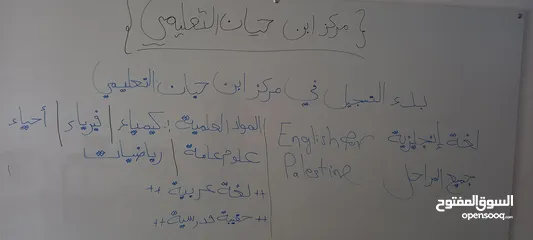 { مركز ابن حيان التعليمي }
بدء التسجيل في مركز ابن حيان التعليمي
لغة إنجليزية English for Palestine
جميع المراحل
المواد العلمية : كيمياء | فيزياء | أحياء
علوم عامة | رياضيات
++ لغة عربية ++
++ حقيبة مدرسية ++
السوق المفتوح
opensooq.com